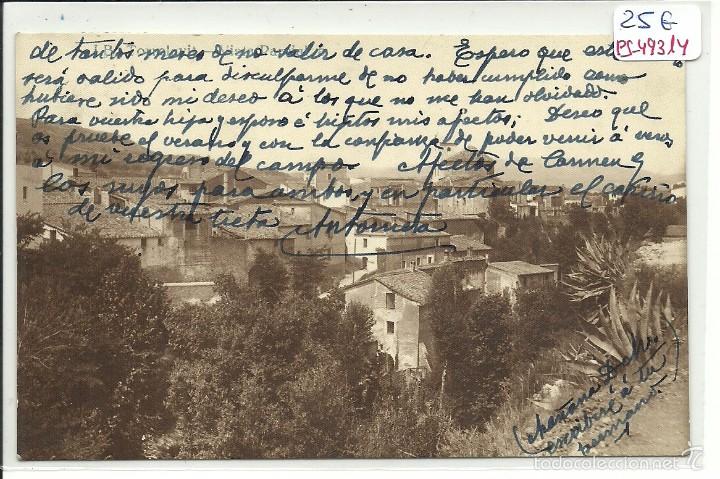 25 €
PS-49314
de tantos meses de no salir de casa. Espero que esto
será valido para disculparme de no haber cumplido como
hubiere sido mi deseo á los que no me han olvidado.
Para vuestra hija y esposo é hijitos mis afectos; Deseo que
os pruebe el verano y con la confianza de poder venir á veros
á mi regreso del campo. Afectos de Carmen y
los suyos para ambos, y en particular el cariño
de vuestra tieta Antonieta
(Mañana
escribiré á tu
hermano.)
todocoleccion